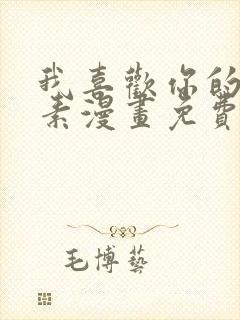 我喜歡你的
素漫畫免費
毛博藝